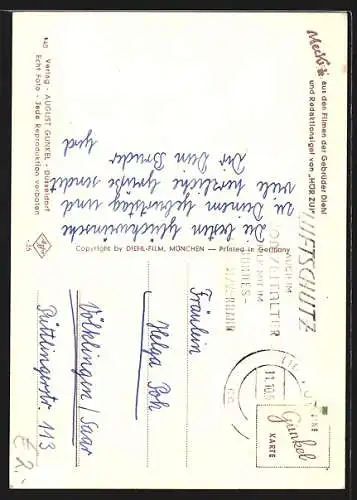 Mecki
aus den Filmen der Gebrüder Diehl
und Redaktionsigel von „HÖR ZU!"
Die besten Glückwünsche
zu Deinem Geburtstag und
viele herzliche Grüße sendet
Dir Dein Bruder
Gerd
Verlag - AUGUST GUNKEL - Düsseldorf
Echt Foto - Jede Reproduktion verboten
Agfa
Copyright by DIEHL-FILM, MÜNCHEN — Printed in Germany
LUFTSCHUTZ
Gunkel
KARTE
Fräulein
Helga Poh
Völklingen/Saar
Püttlingerstr. 113
£ 2,-